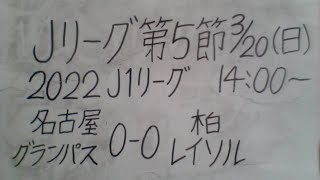 Jリーグ第5節3/20(日)
2022 J1リーグ 14:00〜
名古屋 柏
グランパス 0-0 レイソル